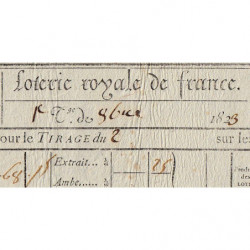 Loterie royale de france.
1er T. de 8bre 1823
our le TIRAGE du 2 sur les
Extrait... à 25
Ambe... à